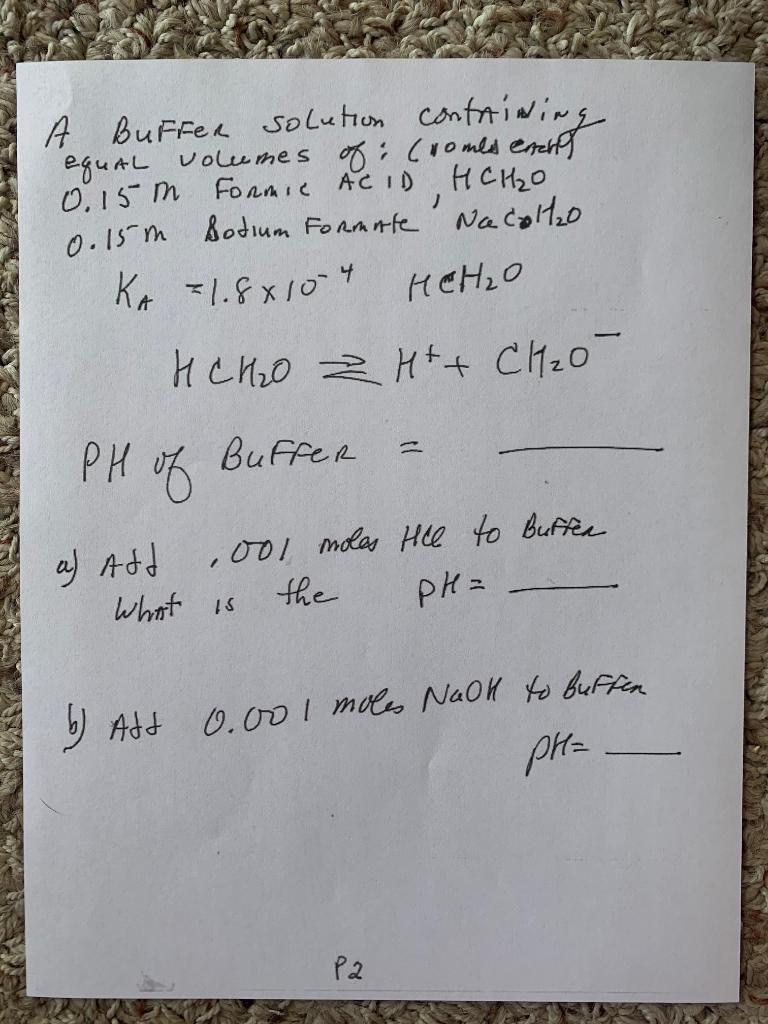 A Buffer solution containing
equal volumes of : (10 mls each)
0.15 M Formic Acid, HCH₂O
0.15 M Sodium Formate, NaCH₂O
KA = 1.8 x 10⁻⁴ HCH₂O
HCH₂O ⇌ H⁺ + CH₂O⁻
PH of Buffer = ____
a) Add .001 moles HCl to Buffer
What is the pH = ____
b) Add 0.001 moles NaOH to Buffer
pH = ____
P2